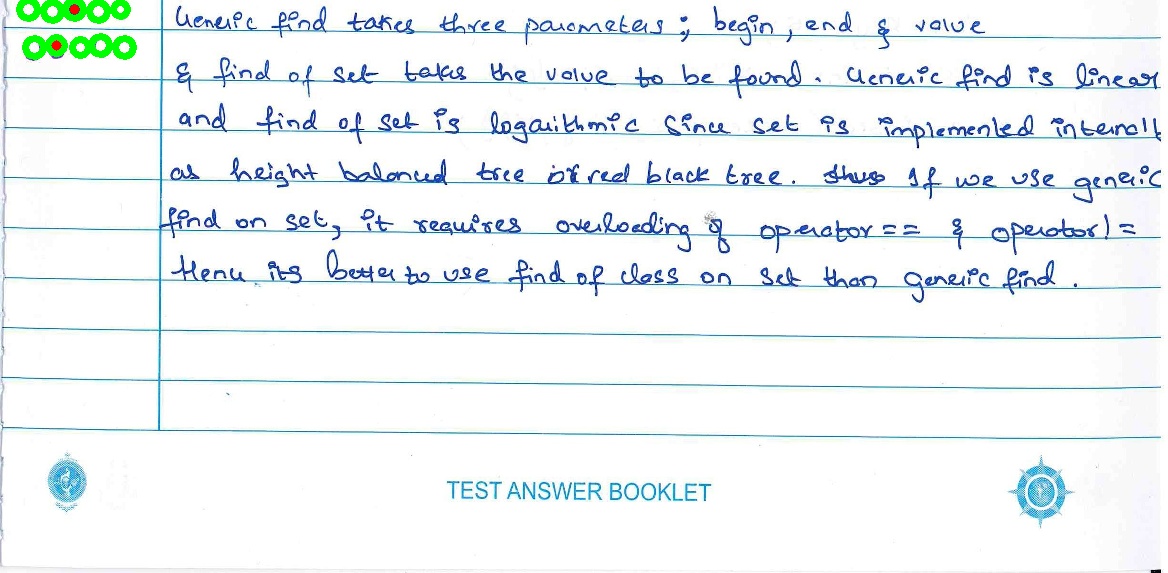 Generic find takes three parameters; begin, end & value
& find of set takes the value to be found. Generic find is linear
and find of set is logarithmic since set is implemented internall
as height balanced tree red black tree. thus If we use generic
find on set, it requires overloading of operator== & operator!=
Hence its better to use find of class on set than generic find.
TEST ANSWER BOOKLET